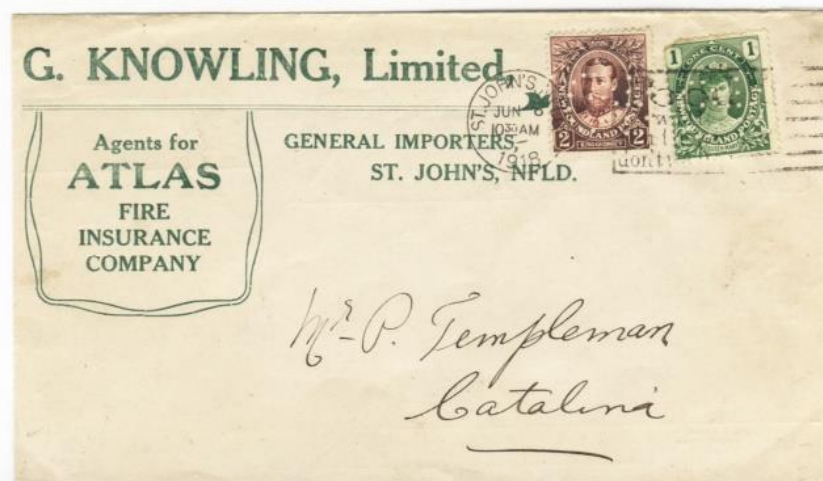 G. KNOWLING, Limited
Agents for
ATLAS
FIRE
INSURANCE
COMPANY
GENERAL IMPORTERS,
ST. JOHN'S, NFLD.
ST. JOHN'S
JUN 8
1030 AM
1918
2 2
KING GEORGE V
ONE CENT
1 1
Mr. P. Templeman
Catalina